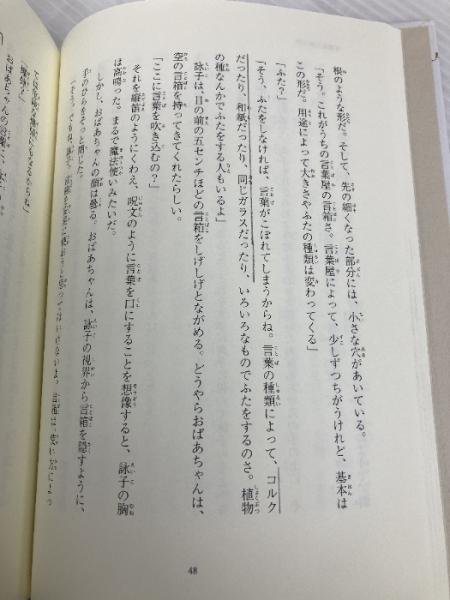 根のような形だ。そして、先の細くなった部分には、小さな穴があいている。
「そう。これがうちの言葉屋の言箱さ。言葉屋によって、少しずつちがうけれど、基本は
この形だ。用途によって大きさやふたの種類は変わってくる」
「ふた？」
「そう、ふたをしなければ、言葉がこぼれてしまうからね。言葉の種類によって、コルク
だったり、和紙だったり、同じガラスだったり、いろいろなものでふたをするのさ。植物
の種なんかでふたをする人もいるよ」
詠子は、目の前の五センチほどの言箱をしげしげとながめる。どうやらおばあちゃんは、
空の言箱を持ってきてくれたらしい。
「ここに言葉を吹き込むの？」
それを縦笛のようにくわえ、呪文のように言葉を口にすることを想像すると、詠子の胸
は高鳴った。まるで魔法使いみたいだ。
しかし、おばあちゃんの顔は曇る。おばあちゃんは、詠子の視界から言箱を隠すように、
手のひらをさっと閉じた。
48